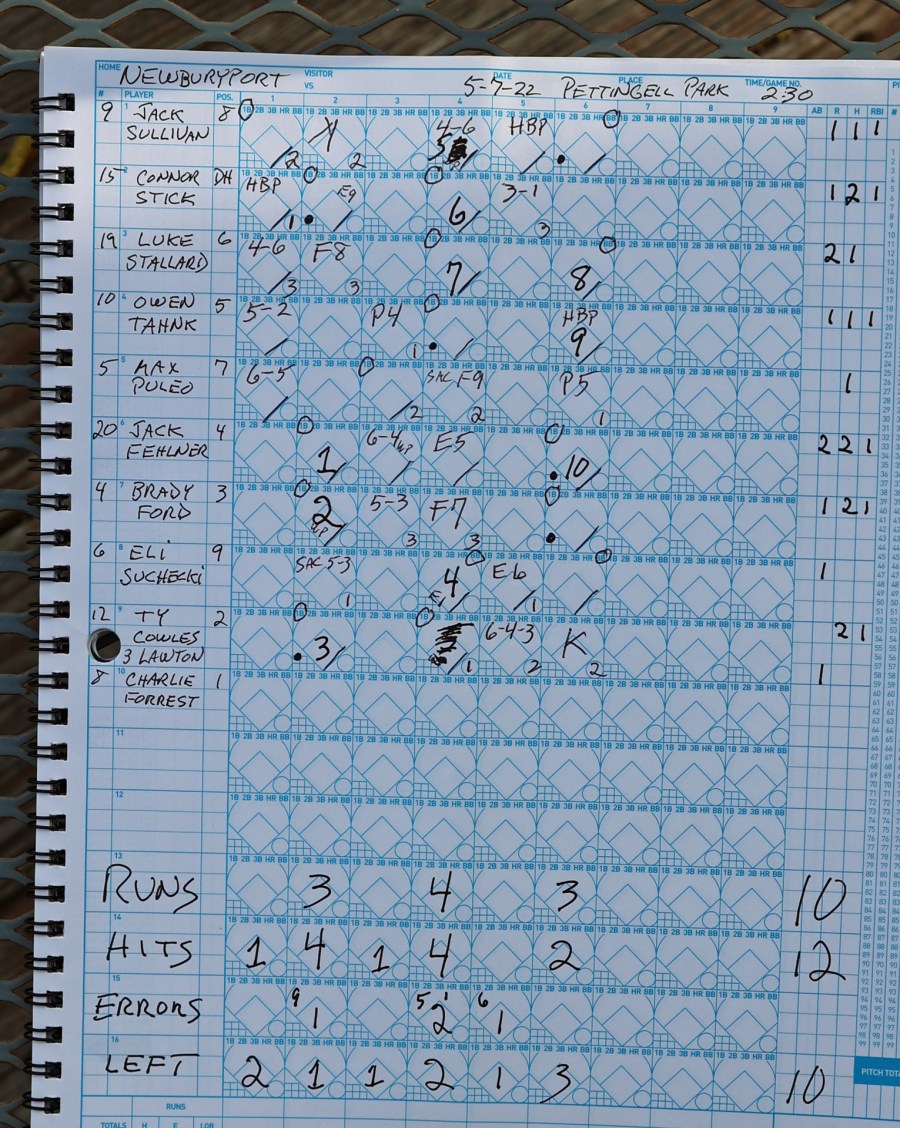 HOME NEWBURYPORT VISITOR VS DATE 5-7-22 PLACE PETTINGELL PARK TIME/GAME NO. 2:30
# PLAYER POS. 1 2 3 4 5 6 7 8 9 AB R H RBI #
9 1 JACK SULLIVAN 8 /2 2 4-6 HBP / • / 1 1 1
15 2 CONNOR STICK DH HBP /1 • E9 / 6/ 3-1 3 1 2 1
19 3 LUKE STALLARD 6 4-6 /3 F8 3 7/ 8/ 2 1
10 4 OWEN TAHNK 5 5-2 / P4 1 • / HBP 9/ 1 1 1
5 5 MAX PULEO 7 6-5 / /2 SAC F9 2 P5 1 1
20 6 JACK FEHLNER 4 1/ 6-4 WP / E5 / • 10/ 2 2 1
4 7 BRADY FORD 3 2 WP / 5-3 3 F7 3 • / 1 2 1
6 8 ELI SUCHECKI 9 SAC 5-3 1 4 E1/ E-6 /1 / 1
12 9 TY COWLES 2 • 3/ /1 6-4-3 2 K 2 2 1
3 LAWTON
8 10 CHARLIE FORREST 1 1
11
12
13
RUNS 3 4 3 10
14
HITS 1 4 1 4 2 12
15
ERRORS 9 1 5 1 2 6 1
16
LEFT 2 1 1 2 1 3 10
PITCH TOT
RUNS
TOTALS H E LOB